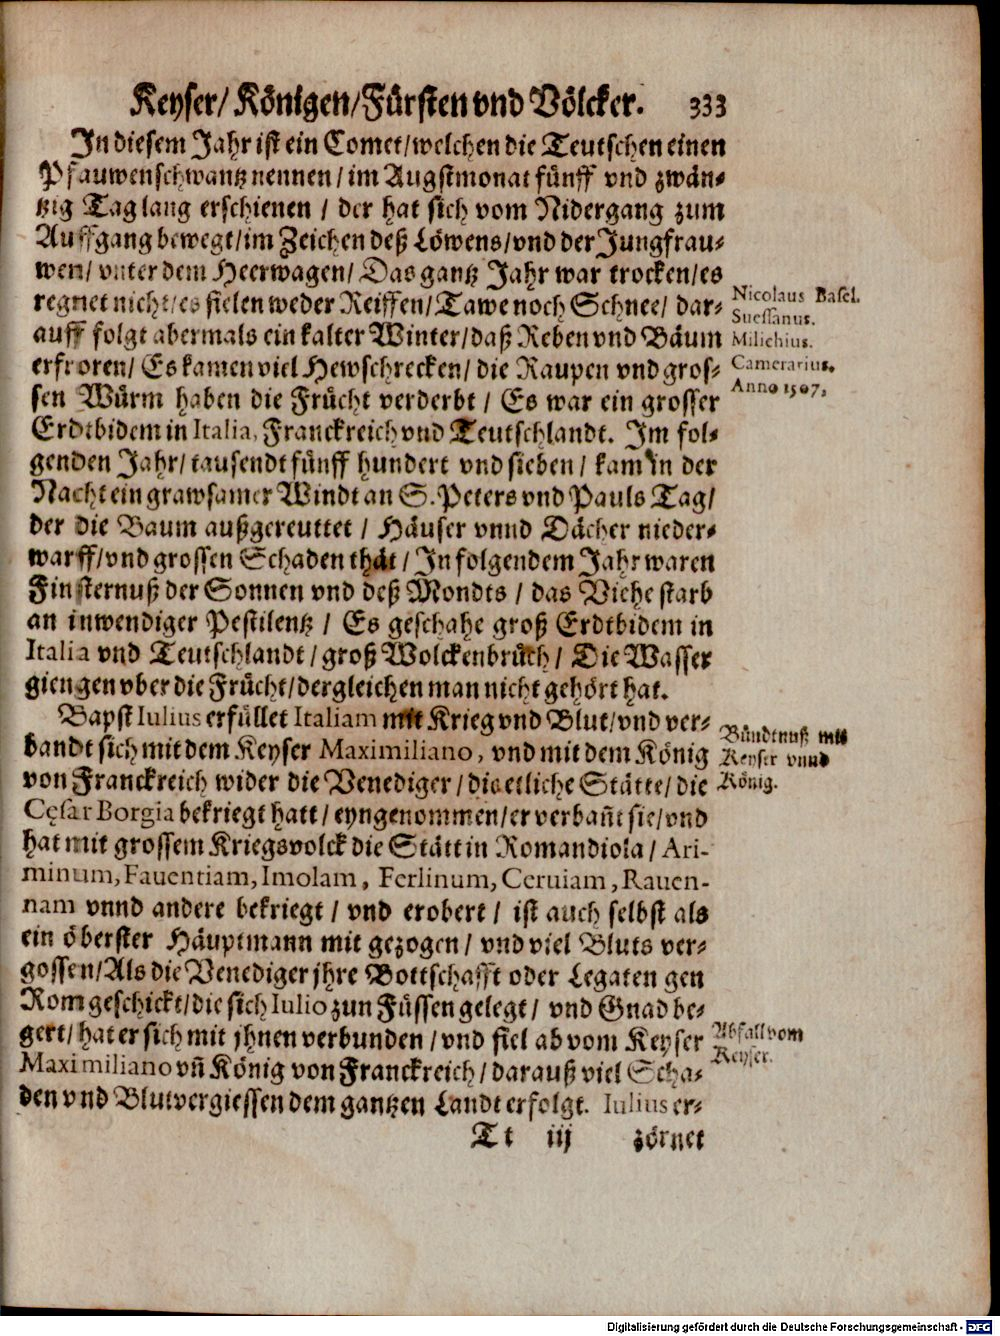 Keyser/ Königen/Fürsten vnd Völcker. 333
In diesem Jahr ist ein Comet/welchen die Teutschen einen
Pfauwenschwantz nennen/im Augstmonat fünff vnd zwän-
tzig Tag lang erschienen / der hat sich vom Nidergang zum
Auffgang bewegt/im Zeichen deß Löwens/vnd der Jungfrau-
wen/ vnter dem Heerwagen/ Das gantz Jahr war trocken/es
regnet nicht/es fielen weder Reiffen/Tawe noch Schnee/ dar-
auff folgt abermals ein kalter Winter/daß Reben vnd Bäum
erfroren/ Es kamen viel Hewschrecken/ die Raupen vnd gros-
sen Würm haben die Frücht verderbt / Es war ein grosser
Erdtbidem in Italia, Franckreich vnd Teutschlandt. Im fol-
genden Jahr/tausendt fünff hundert vnd sieben/ kam in der
Nacht ein grawsamer Windt an S. Peters vnd Pauls Tag/
der die Baum außgereuttet / Häuser vnnd Dächer nieder-
warff/vnd grossen Schaden thät / In folgendem Jahr waren
Finsternuß der Sonnen vnd deß Mondts / das Viehe starb
an inwendiger Pestilentz / Es geschahe groß Erdtbidem in
Italia vnd Teutschlandt/groß Wolckenbrüch/ Die Wasser
giengen vber die Frücht/dergleichen man nicht gehört hat.
Nicolaus Basel.
Suessanus.
Milichius.
Camerarius.
Anno 1507.
Bapst Iulius erfüllet Italiam mit Krieg vnd Blut/vnd ver-
bandt sich mit dem Keyser Maximiliano, vnd mit dem König
von Franckreich wider die Venediger/die etliche Stätte/die
Cęsar Borgia bekriegt hatt/eyngenommen/er verbañt sie/vnd
hat mit grossem Kriegsvolck die Stätt in Romandiola/ Ari-
minum, Faventiam, Imolam, Ferlinum, Ceruiam, Raven-
nam vnnd andere bekriegt / vnd erobert / ist auch selbst als
ein öberster Häuptmann mit gezogen / vnd viel Bluts ver-
gossen/Als die Venediger jhre Bottschafft oder Legaten gen
Rom geschickt/die sich Iulio zun Füssen gelegt/ vnd Gnad be-
gert/ hat er sich mit jhnen verbunden /vnd fiel ab vom Keyser
Maximiliano vñ König von Franckreich/darauß viel Scha-
den vnd Blutvergiessen dem gantzen Landt erfolgt. Iulius er-
Bündtnuß mit
Keyser vnnd
König.
Abfall vom
Keyser.
Tt iij zörnet
Digitalisierung gefördert durch die Deutsche Forschungsgemeinschaft - DFG